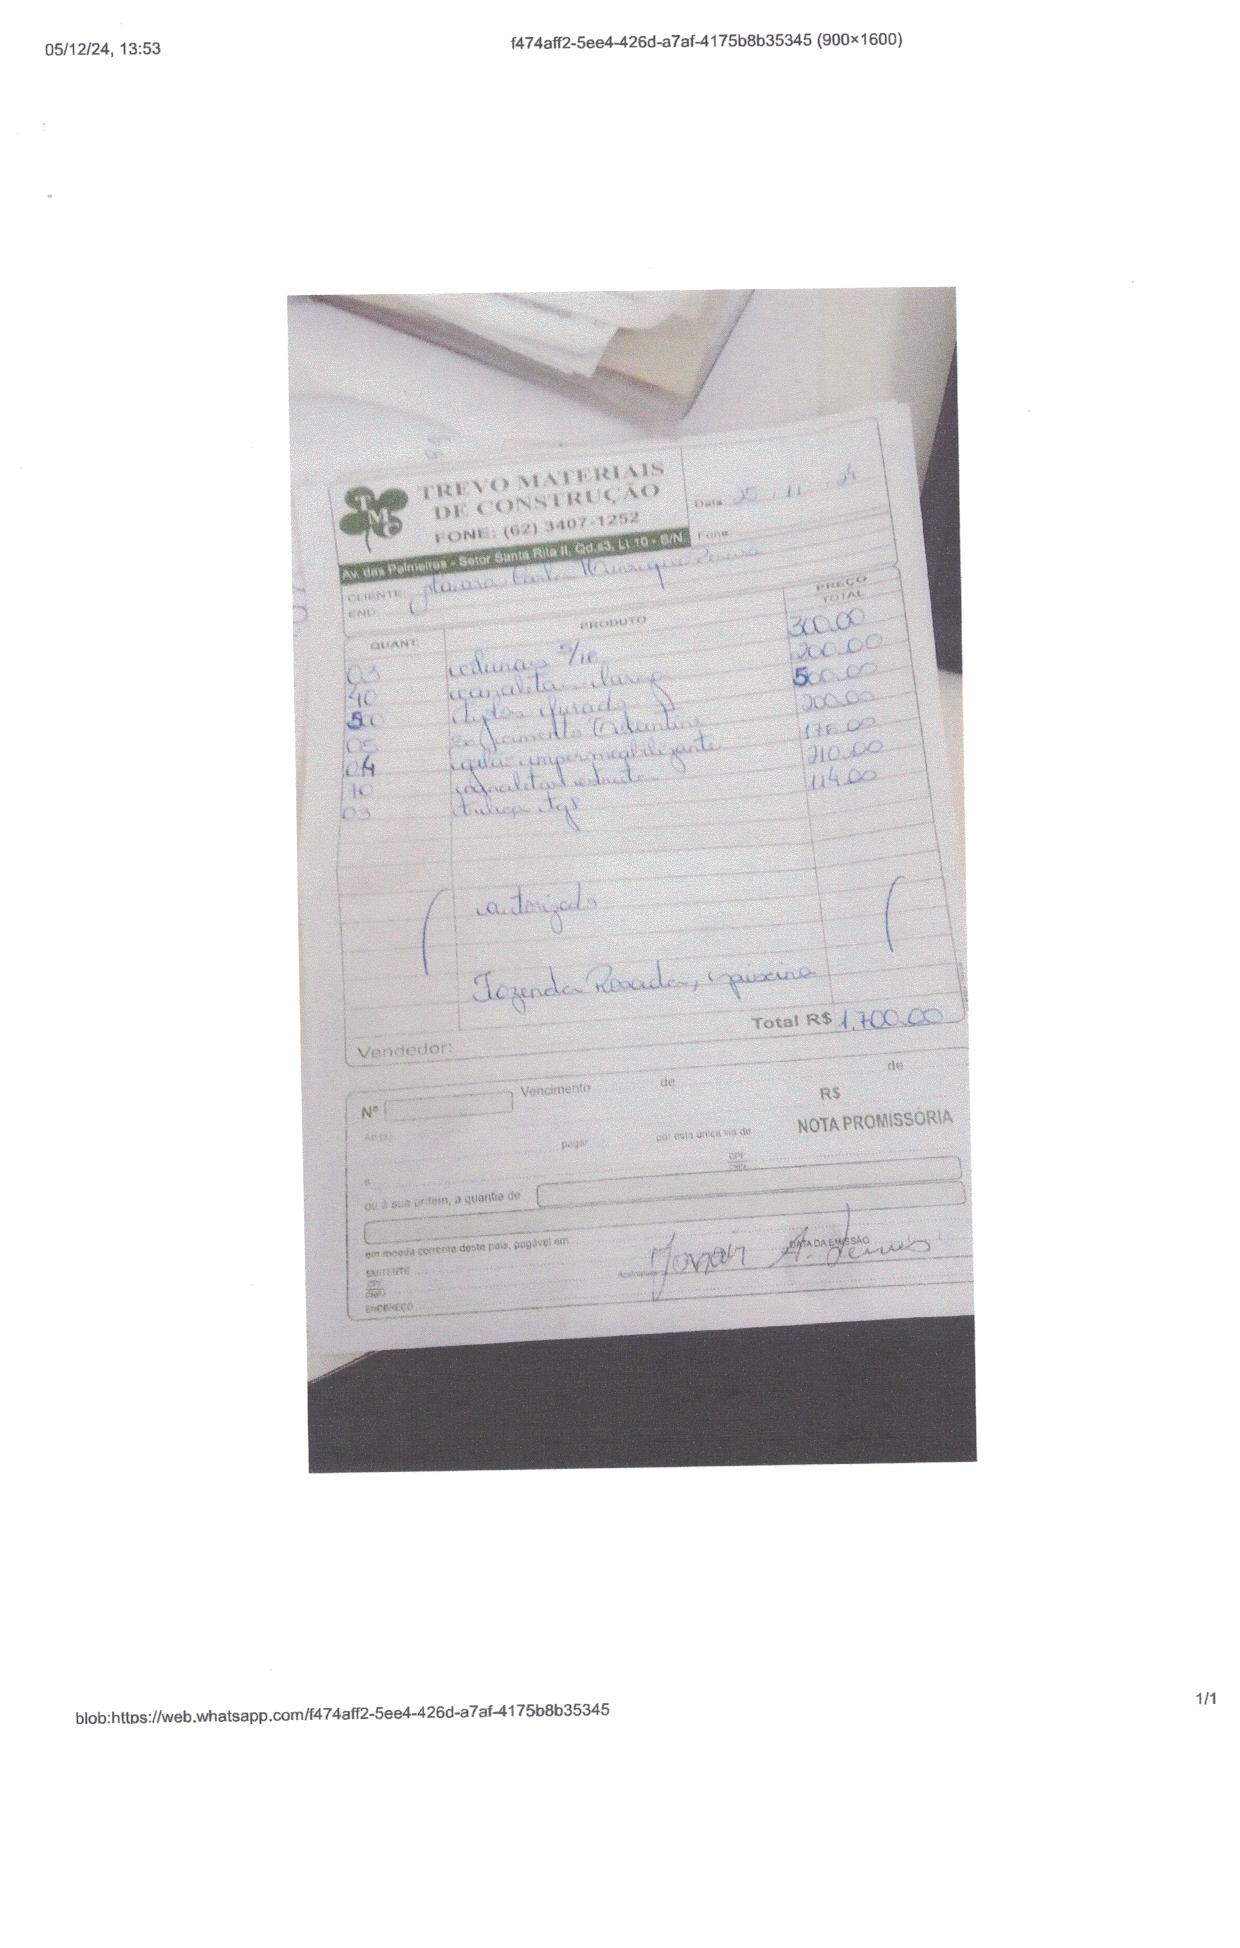 05/12/24, 13:53
f474aff2-5ee4-426d-a7af-4175b8b35345 (900×1600)
TMC
TREVO MATERIAIS
DE CONSTRUÇÃO
FONE: (62) 3407-1252
Av. das Palmeiras - Setor Santa Rita II, Qd.s3, Lt 10 - S/N.
Data 25 . 11 . 24
Fone
CLIENTE Carlos Henrique Pereira
END
QUANT. PRODUTO PREÇO TOTAL
03 colunas 5/16 300.00
40 canaleta larga 200.00
500 furado 500.00
05 cimento 200.00
04 impermeabilizante 176.00
70 canaleta 210.00
03 treliça tg8 114.00
autorizado
Fazenda Rosada, piscina
Total R$ 1.700.00
Vendedor:
Nº Vencimento de de
R$
NOTA PROMISSÓRIA
pagar por esta única via de
a CPF
ou à sua ordem, a quantia de
em moeda corrente deste país, pagável em
DATA DA EMISSÃO
EMITENTE
CPF
ENDEREÇO
blob:https://web.whatsapp.com/f474aff2-5ee4-426d-a7af-4175b8b35345
1/1